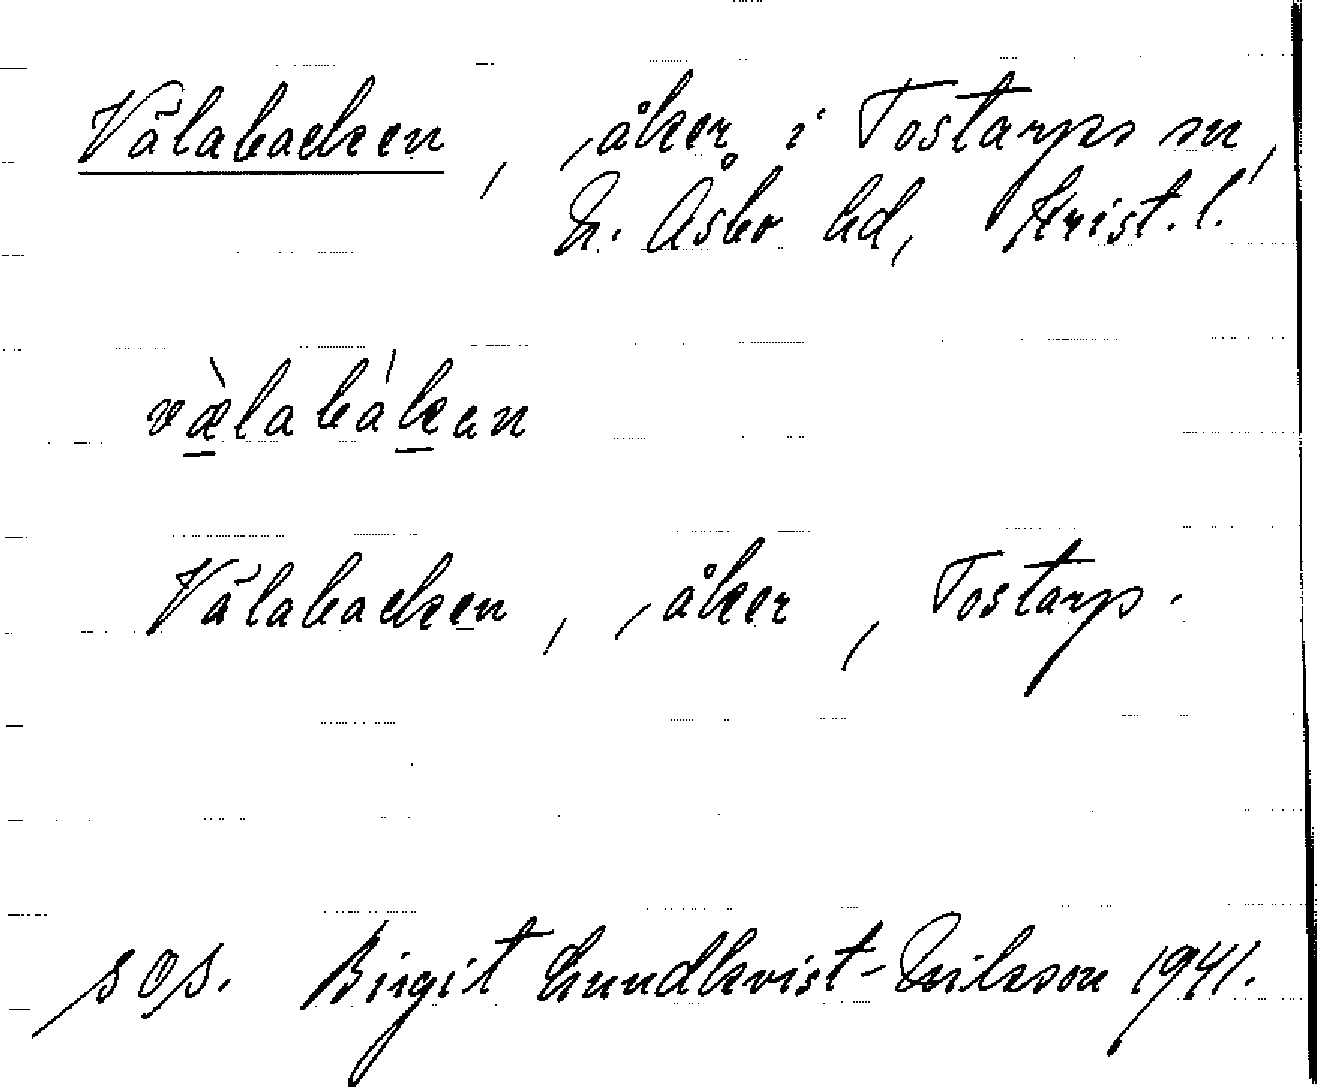 Välabacken, åker i Tostarps sn,
N. Åsbo hd, Krist. l.
væ̀labákan
Välabacken, åker, Tostarp.
Birgit Lundkvist-Nilsson 1941.